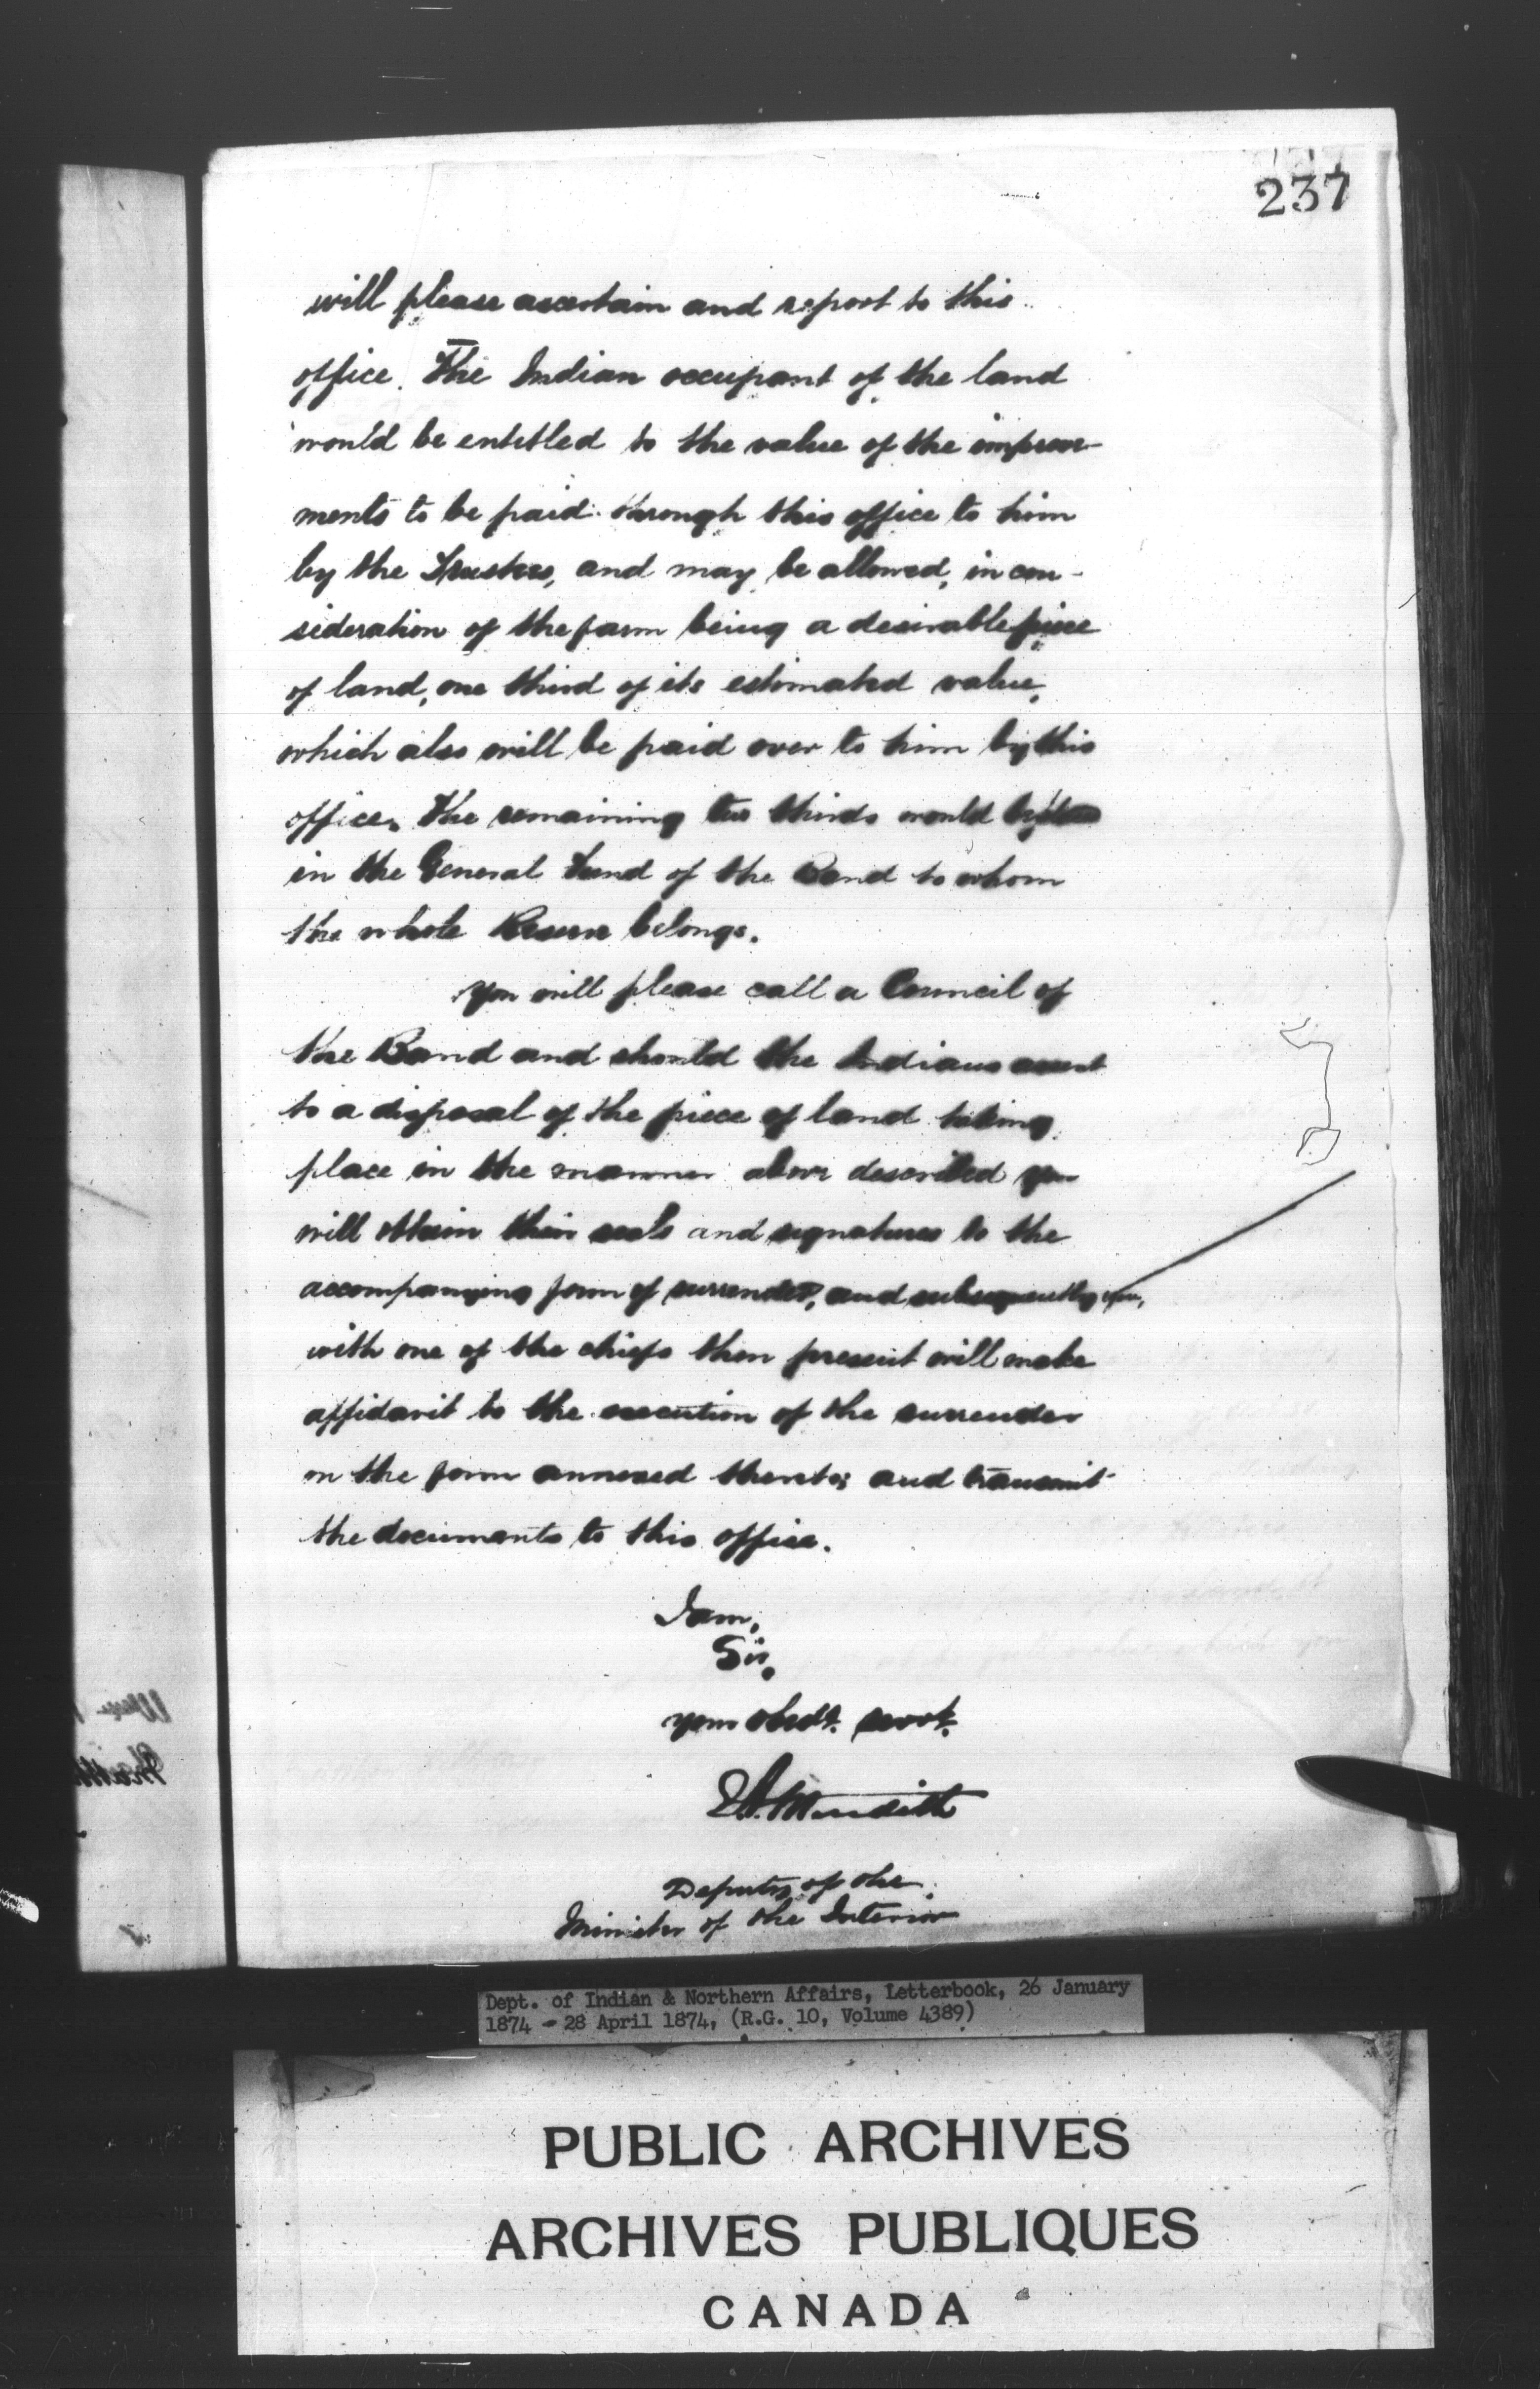 237
will please ascertain and report to this
office. The Indian occupant of the land
would be entitled to the value of the improve-
ments to be paid through this office to him
by the Trustees, and may be allowed, in con-
sideration of the farm being a desirable piece
of land, one third of its estimated value,
which also will be paid over to him by this
office. The remaining two thirds would
in the General Fund of the Band to whom
the whole Reserve belongs.
You will please call a Council of
the Band and should the Indians assent
to a disposal of the piece of land taking
place in the manner above described you
will obtain their seals and signatures to the
accompanying form of surrender, and subsequently you,
with one of the chiefs then present will make
affidavit to the execution of the surrender
on the form annexed thereto; and transmit
the documents to this office.
I am,
Sir,
your obedt. servt.
E. A. Meredith
Deputy of the
Minister of the Interior
Dept. of Indian & Northern Affairs, Letterbook, 26 January
1874 - 28 April 1874, (R.G. 10, Volume 4389)
PUBLIC ARCHIVES
ARCHIVES PUBLIQUES
CANADA